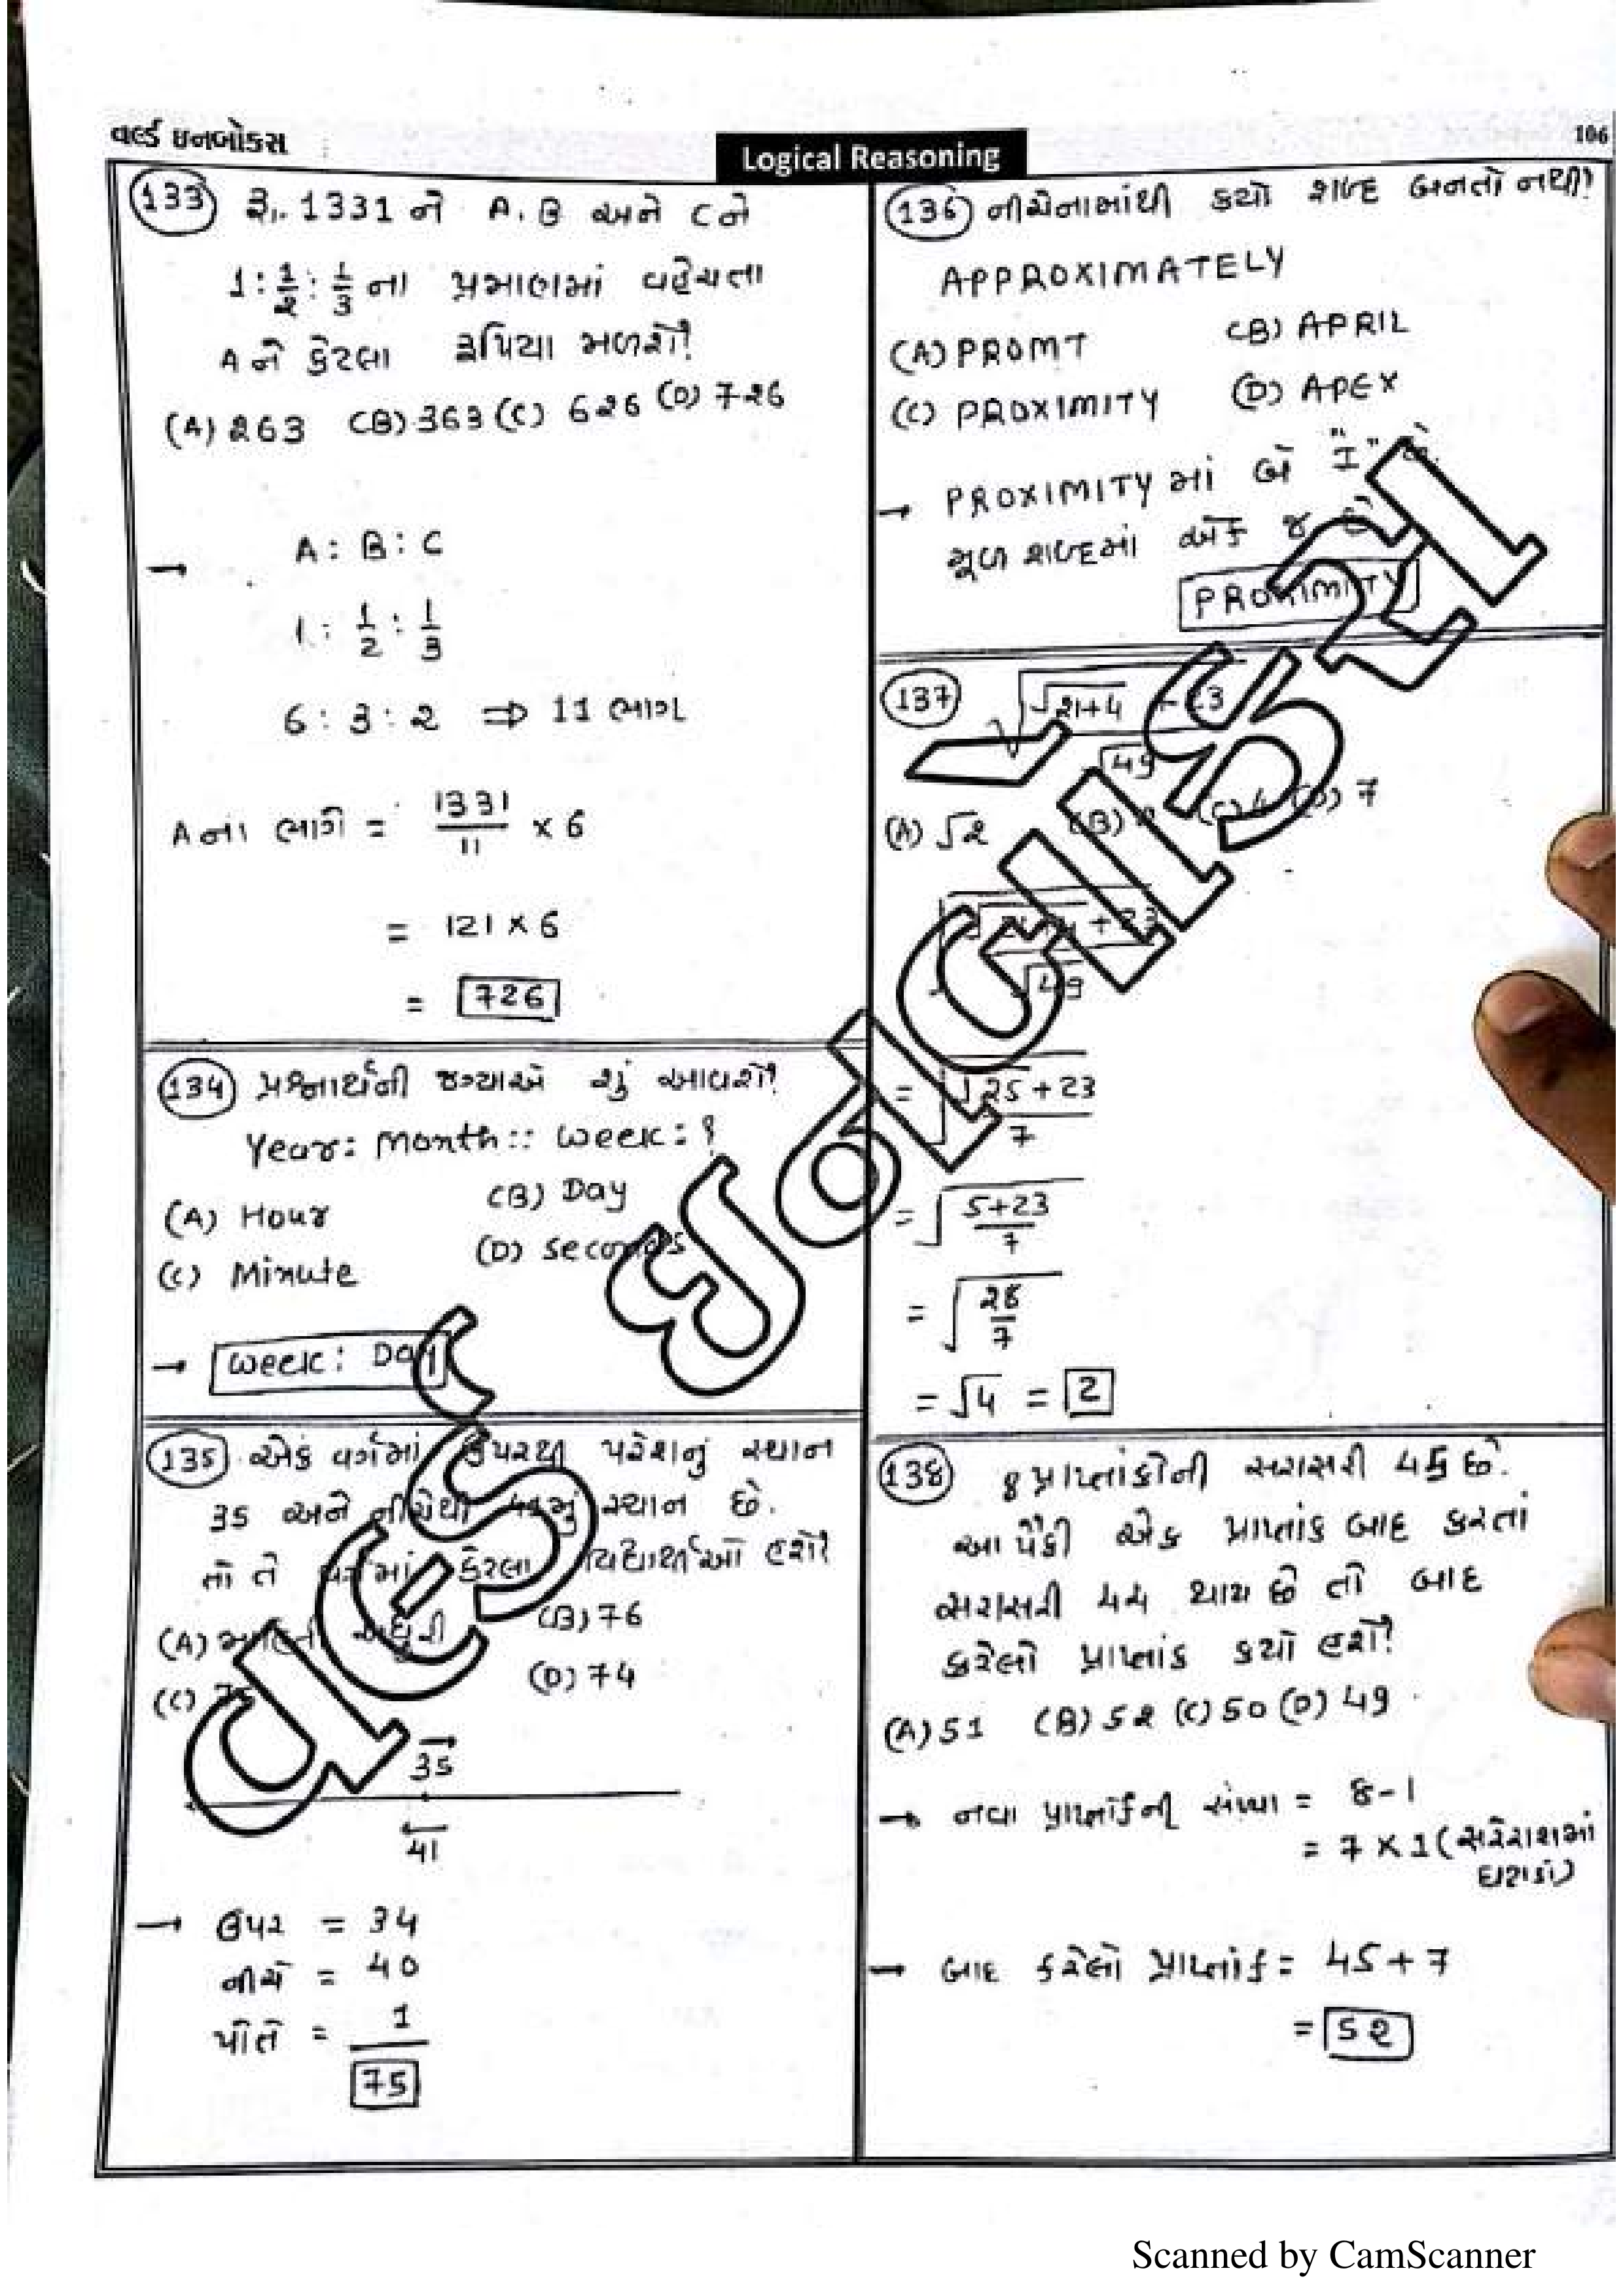 વર્લ્ડ ઇનબોક્સ
Logical Reasoning
106
133 રૂ. 1331 ને A, B અને C ને
1 : 1/2 : 1/3 ના પ્રમાણમાં વહેંચતા
A ને કેટલા રૂપિયા મળશે?
(A) 263 (B) 363 (C) 626 (D) 726
→ A : B : C
1 : 1/2 : 1/3
6 : 3 : 2 ⇒ 11 ભાગ
A ના ભાગે = 1331/11 × 6
= 121 × 6
= 726
134 પ્રશ્નાર્થની જગ્યાએ શું આવશે?
Year : Month :: Week : ?
(A) Hour (B) Day
(C) Minute (D) seconds
→ Week : Day
135 એક વર્ગમાં ઉપરથી પરેશનું સ્થાન
35 અને નીચેથી 41મું સ્થાન છે.
તો તે વર્ગમાં કેટલા વિદ્યાર્થીઓ હશે?
(A) માહિતી અધુરી (B) 76
(C) 75 (D) 74
35
41
→ ઉપર = 34
નીચે = 40
પોતે = 1
75
136 નીચેનામાંથી કયો શબ્દ બનતો નથી?
APPROXIMATELY
(A) PROMT (B) APRIL
(C) PROXIMITY (D) APEX
→ PROXIMITY માં બે "I" છે.
મૂળ શબ્દમાં એક જ છે
PROXIMITY
137 √((√(21+4) + 23)/√49)
(A) √2 (B) 2 (C) 4 (D) 7
√((√(21+4) + 23)/√49)
= √((√25 + 23)/7)
= √((5+23)/7)
= √(28/7)
= √4 = 2
138 8 પ્રાપ્તાંકોની સરાસરી 45 છે.
આ પૈકી એક પ્રાપ્તાંક બાદ કરતાં
સરાસરી 44 થાય છે તો બાદ
કરેલો પ્રાપ્તાંક કયો હશે?
(A) 51 (B) 52 (C) 50 (D) 49
→ નવા પ્રાપ્તાંકની સંખ્યા = 8-1
= 7 × 1 (સરેરાશમાં
ઘટાડો)
→ બાદ કરેલો પ્રાપ્તાંક = 45 + 7
= 52
Scanned by CamScanner